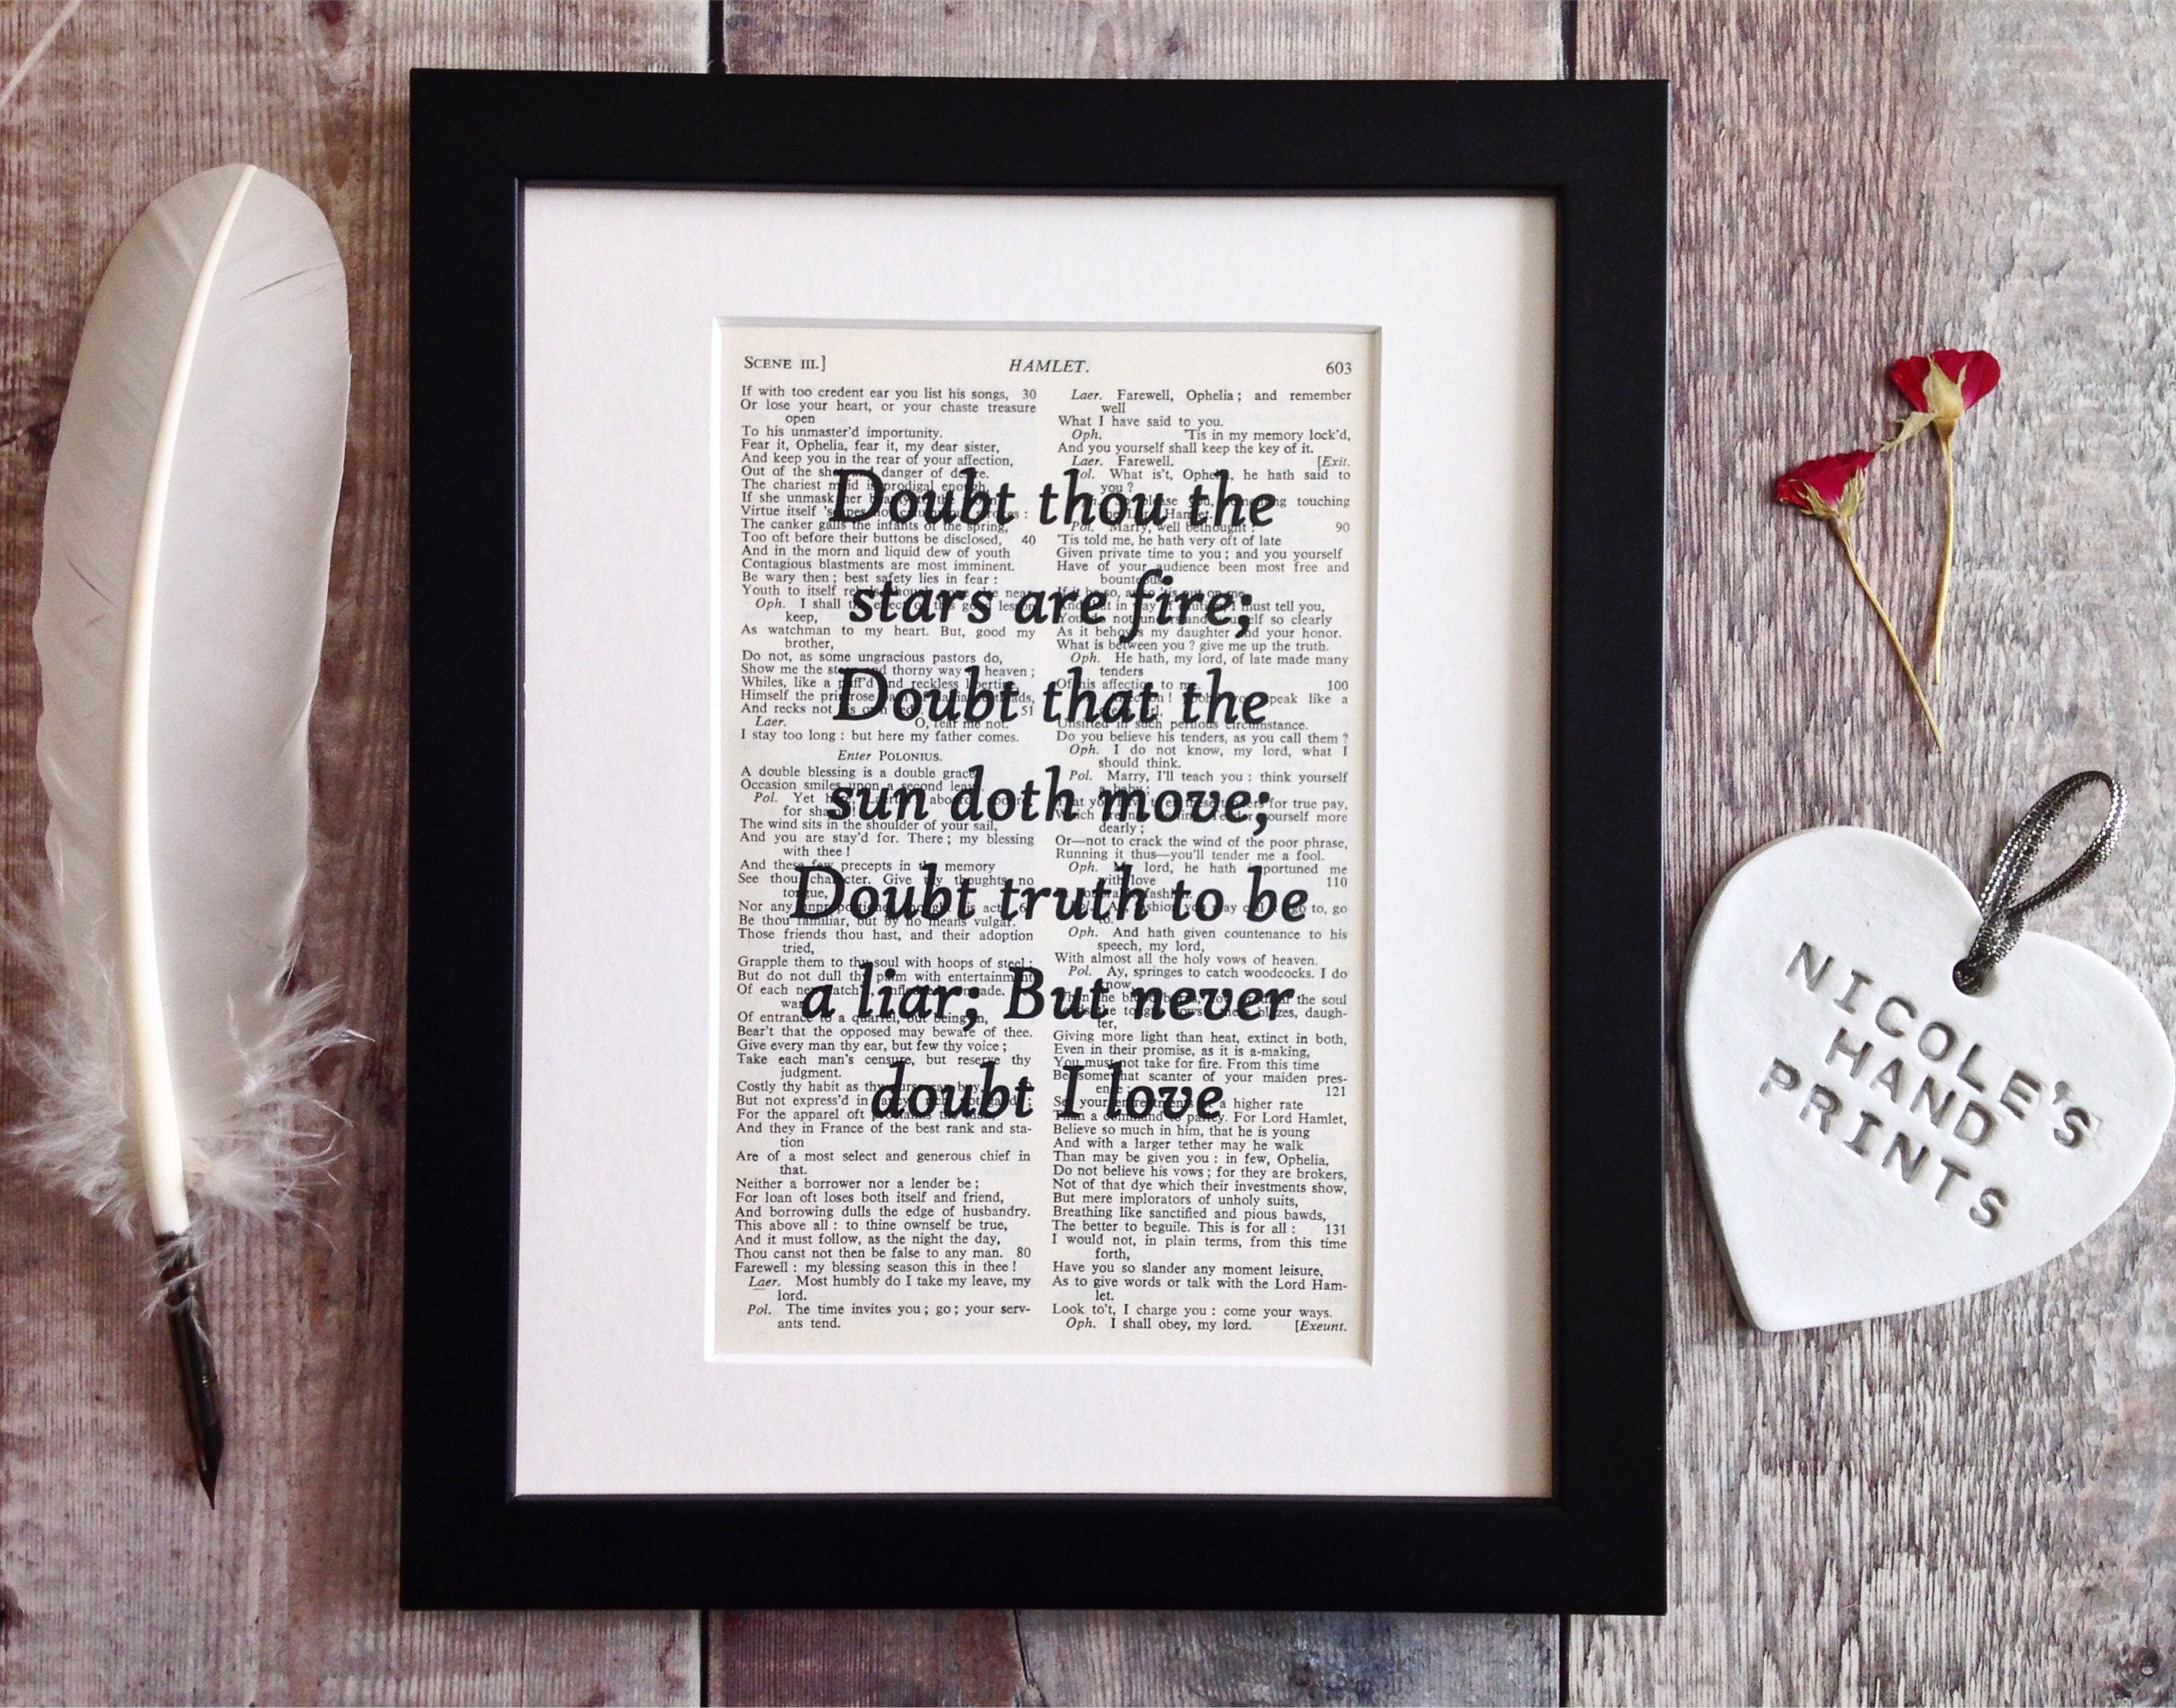 SCENE III.]
HAMLET.
603
Doubt thou the
stars are fire;
Doubt that the
sun doth move;
Doubt truth to be
a liar; But never
doubt I love
If with too credent ear you list his songs, 30
Or lose your heart, or your chaste treasure
open
To his unmaster'd importunity.
Fear it, Ophelia, fear it, my dear sister,
And keep you in the rear of your affection,
Out of the danger of
The chariest prodigal
If she unmask her
Virtue itself
The canker galls the infants of the spring,
Too oft before their buttons be disclosed, 40
And in the morn and liquid dew of youth
Contagious blastments are most imminent.
Be wary then; best safety lies in fear:
Youth to itself near
Oph. I shall
keep,
As watchman to my heart. But, good my
brother,
Do not, as some ungracious pastors do,
Show me the and thorny way heaven;
Whiles, like a and reckless
Himself the
And recks not 51
Laer. O, fear me not.
I stay too long: but here my father comes.
Enter POLONIUS.
A double blessing is a double grace
Occasion smiles upon a second
Pol. Yet
for
The wind sits in the shoulder of your sail,
And you are stay'd for. There; my blessing
with thee!
And these few precepts in memory
See thou Give thoughts no
Nor any
Be thou familiar, but by no means vulgar.
Those friends thou hast, and their adoption
tried,
Grapple them to thy soul with hoops of steel;
But do not dull thy palm with entertainment
Of each
Of entrance to a quarrel, but being in,
Bear't that the opposed may beware of thee.
Give every man thy ear, but few thy voice;
Take each man's censure, but reserve thy
judgment.
Costly thy habit as thy
But not express'd in
For the apparel oft
And they in France of the best rank and sta-
tion
Are of a most select and generous chief in
that.
Neither a borrower nor a lender be;
For loan oft loses both itself and friend,
And borrowing dulls the edge of husbandry.
This above all: to thine ownself be true,
And it must follow, as the night the day,
Thou canst not then be false to any man. 80
Farewell: my blessing season this in thee!
Laer. Most humbly do I take my leave, my
lord.
Pol. The time invites you; go; your serv-
ants tend.
Laer. Farewell, Ophelia; and remember
well
What I have said to you.
Oph. 'Tis in my memory lock'd,
And you yourself shall keep the key of it.
Laer. Farewell. [Exit.
Pol. What is't, Ophelia, he hath said to
you?
touching
Pol. Marry, well bethought: 90
'Tis told me, he hath very oft of late
Given private time to you; and you yourself
Have of your audience been most free and
I must tell you,
so clearly
As it behoves my daughter and your honor.
What is between you? give me up the truth.
Oph. He hath, my lord, of late made many
tenders
Of his affection to me. 100
speak like a
Unsifted in such perilous circumstance.
Do you believe his tenders, as you call them?
Oph. I do not know, my lord, what I
should think.
Pol. Marry, I'll teach you: think yourself
for true pay,
yourself more
dearly;
Or—not to crack the wind of the poor phrase,
Running it thus—you'll tender me a fool.
Oph. My lord, he hath importuned me
with love
110
go to, go
to.
Oph. And hath given countenance to his
speech, my lord,
With almost all the holy vows of heaven.
Pol. Ay, springes to catch woodcocks. I do
know,
the soul
blazes, daugh-
ter,
Giving more light than heat, extinct in both,
Even in their promise, as it is a-making,
You must not take for fire. From this time
Be somewhat scanter of your maiden pres-
121
Set your a higher rate
Than a command to parley. For Lord Hamlet,
Believe so much in him, that he is young
And with a larger tether may he walk
Than may be given you: in few, Ophelia,
Do not believe his vows; for they are brokers,
Not of that dye which their investments show,
But mere implorators of unholy suits,
Breathing like sanctified and pious bawds,
The better to beguile. This is for all: 131
I would not, in plain terms, from this time
forth,
Have you so slander any moment leisure,
As to give words or talk with the Lord Ham-
let.
Look to't, I charge you: come your ways.
Oph. I shall obey, my lord. [Exeunt.
NICOLE'S
HAND
PRINTS